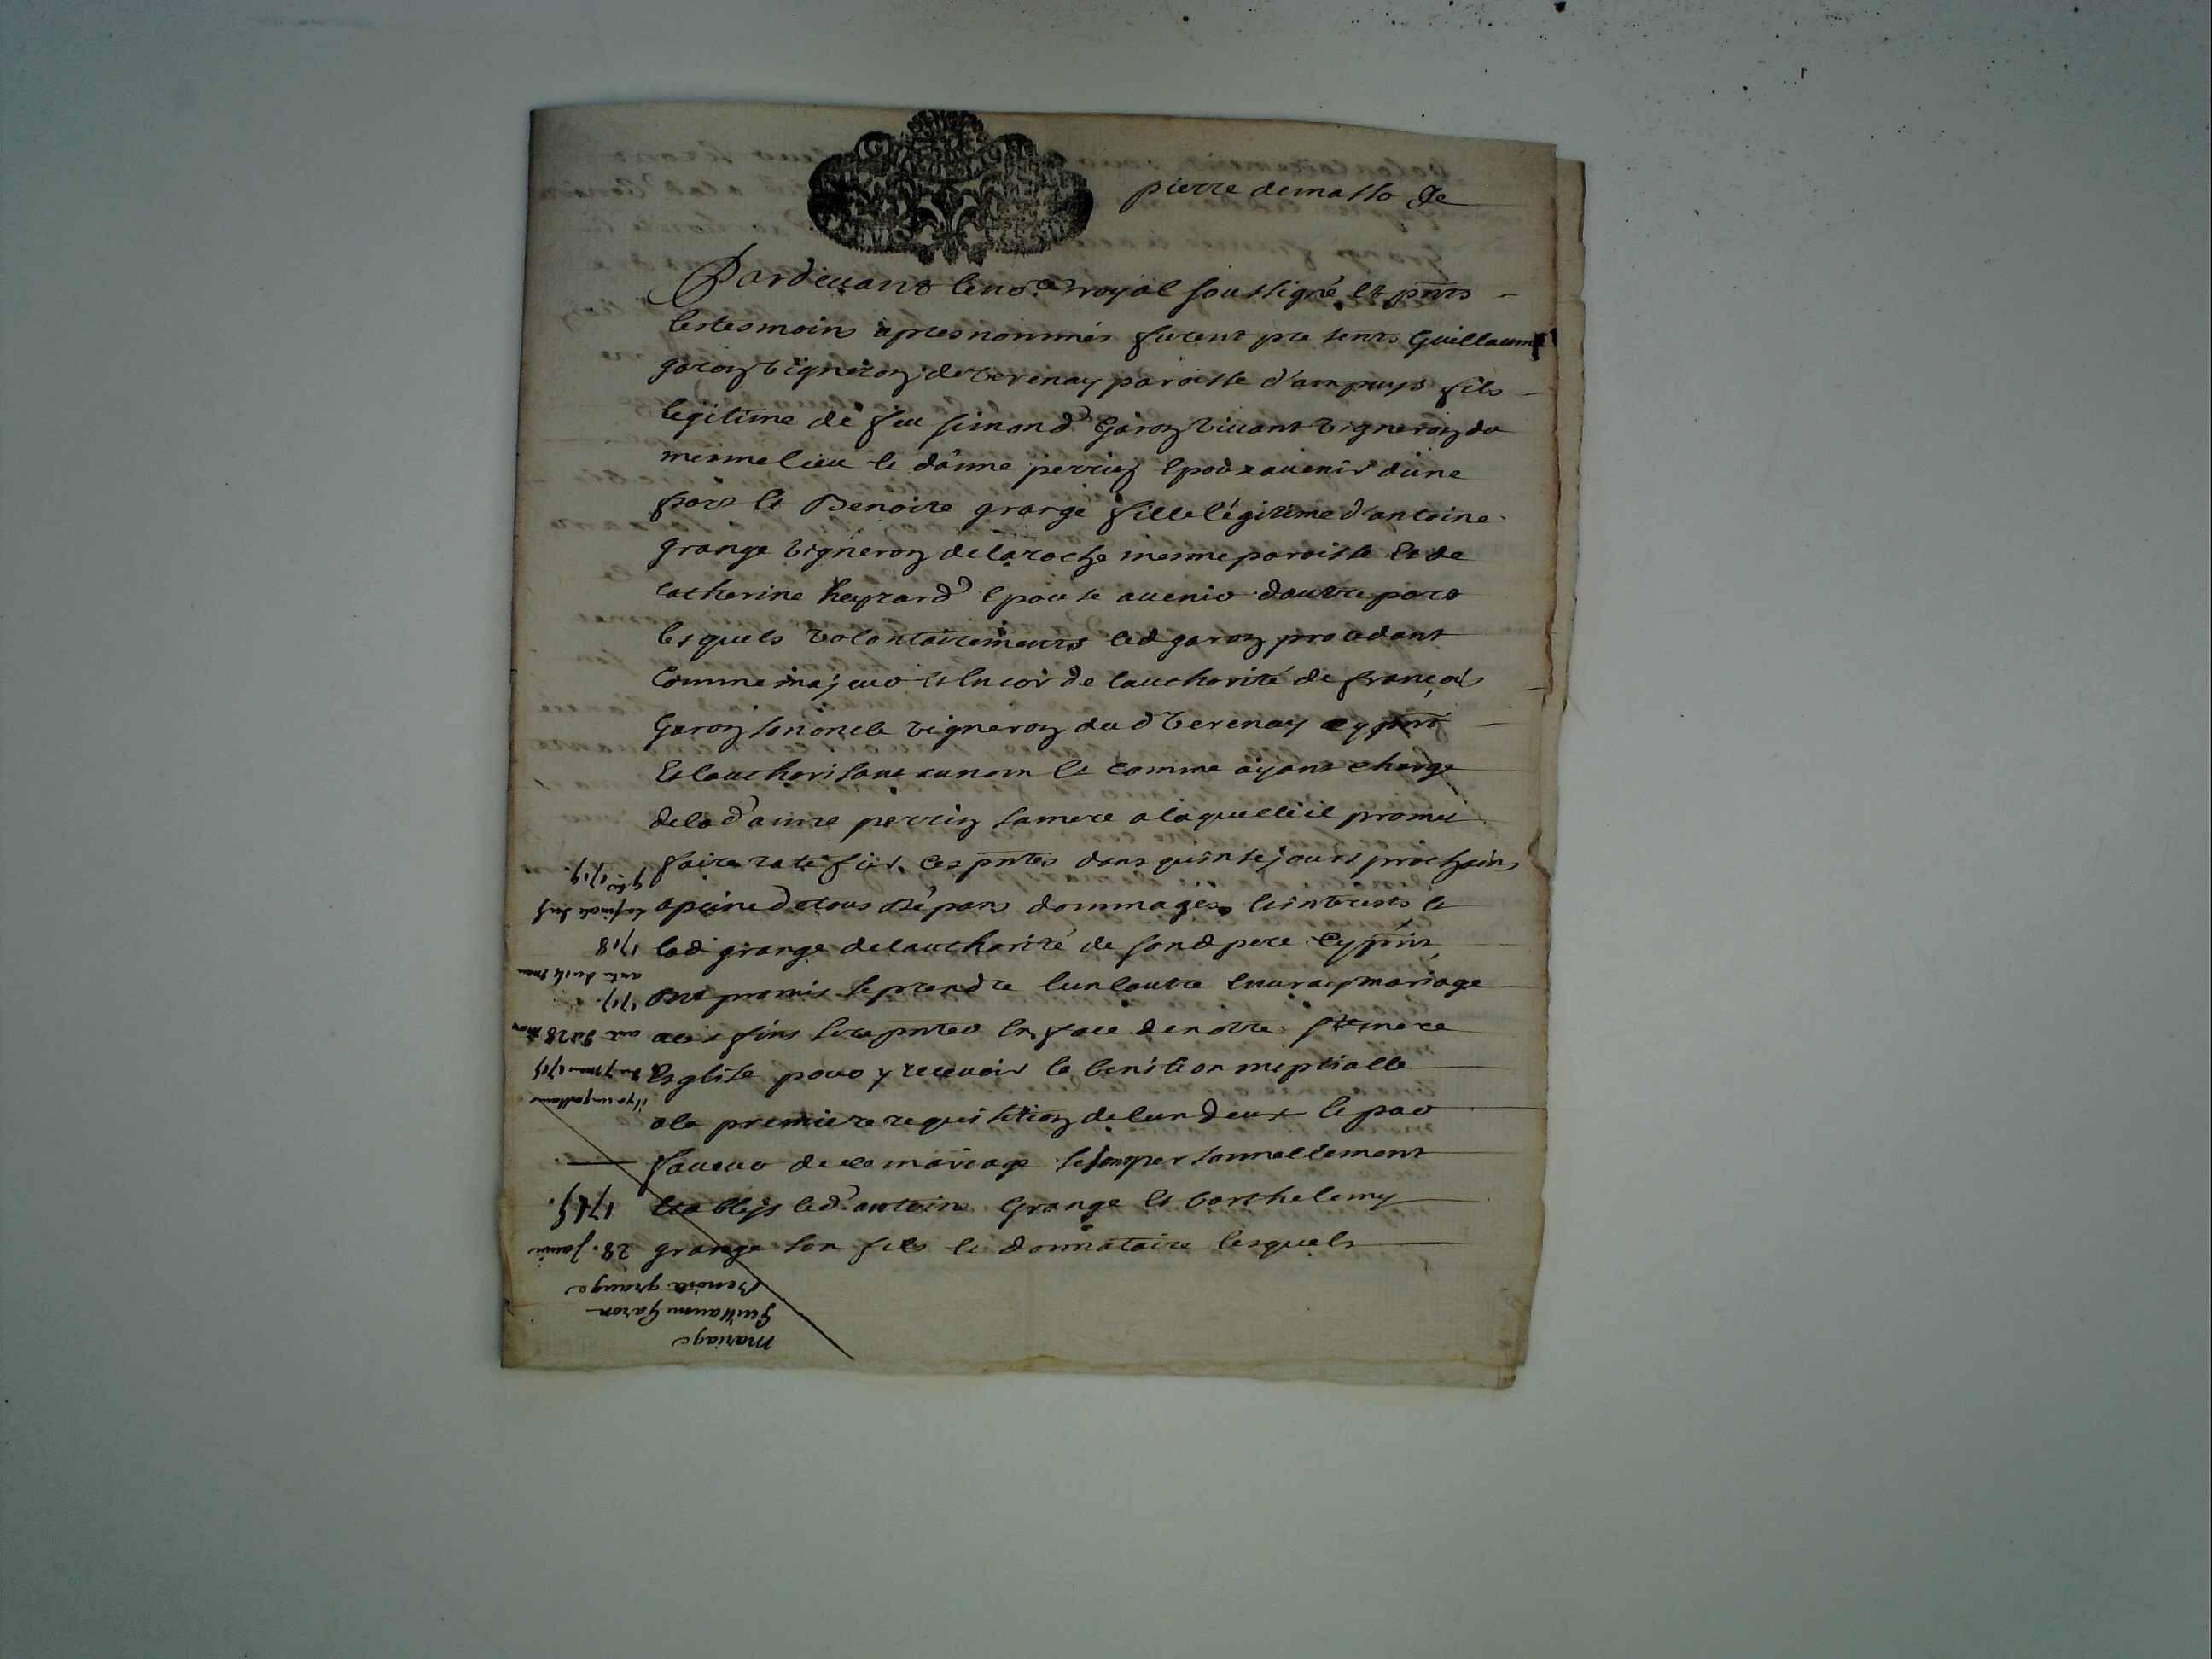 pierre demasso
Pardevant le no.re royal soussigné et pnts
les tesmoins apres nommés furent pre sents Guillaume
garon vigneron de verenay paroisse d'ampuys fils
legitime de feu simond Garon vivant vigneron du
mesme lieu et d'anne perrin epoux avenir d'une
part et Benoite grange fille légitime d'antoine
grange vigneron de la roche mesme paroisse et de
catherine heyrard epouse avenir d'autre part
lesquels volontairements led garon procedant
comme majeur et encor de l'authorité de françois
Garon son oncle vigneron dud verenay cy pnt
et l'authorisant au nom et comme ayant charge
de lad anne perrin sa mere a laquelle il promet
faire ratifier ces pntes dans quinse jours prochains
a peine de tous dépans dommages et interests et
lad grange de l'authorité de sond pere cy pnt
ont promis se prendre l'un l'autre en vray mariage
a ces fins se repnter en face de notre ste mere
Esglise pour y recevoir la benition nuptialle
a la premiere requisition de l'un d'eux et par
faveur de ce mariage se sont personnellement
establys led antoine Grange et barthelemy
grange son fils et donnataire lesquels
mariage
Guillaume Garon
Benoite grange
28. janvier
1715.
1718
1717.